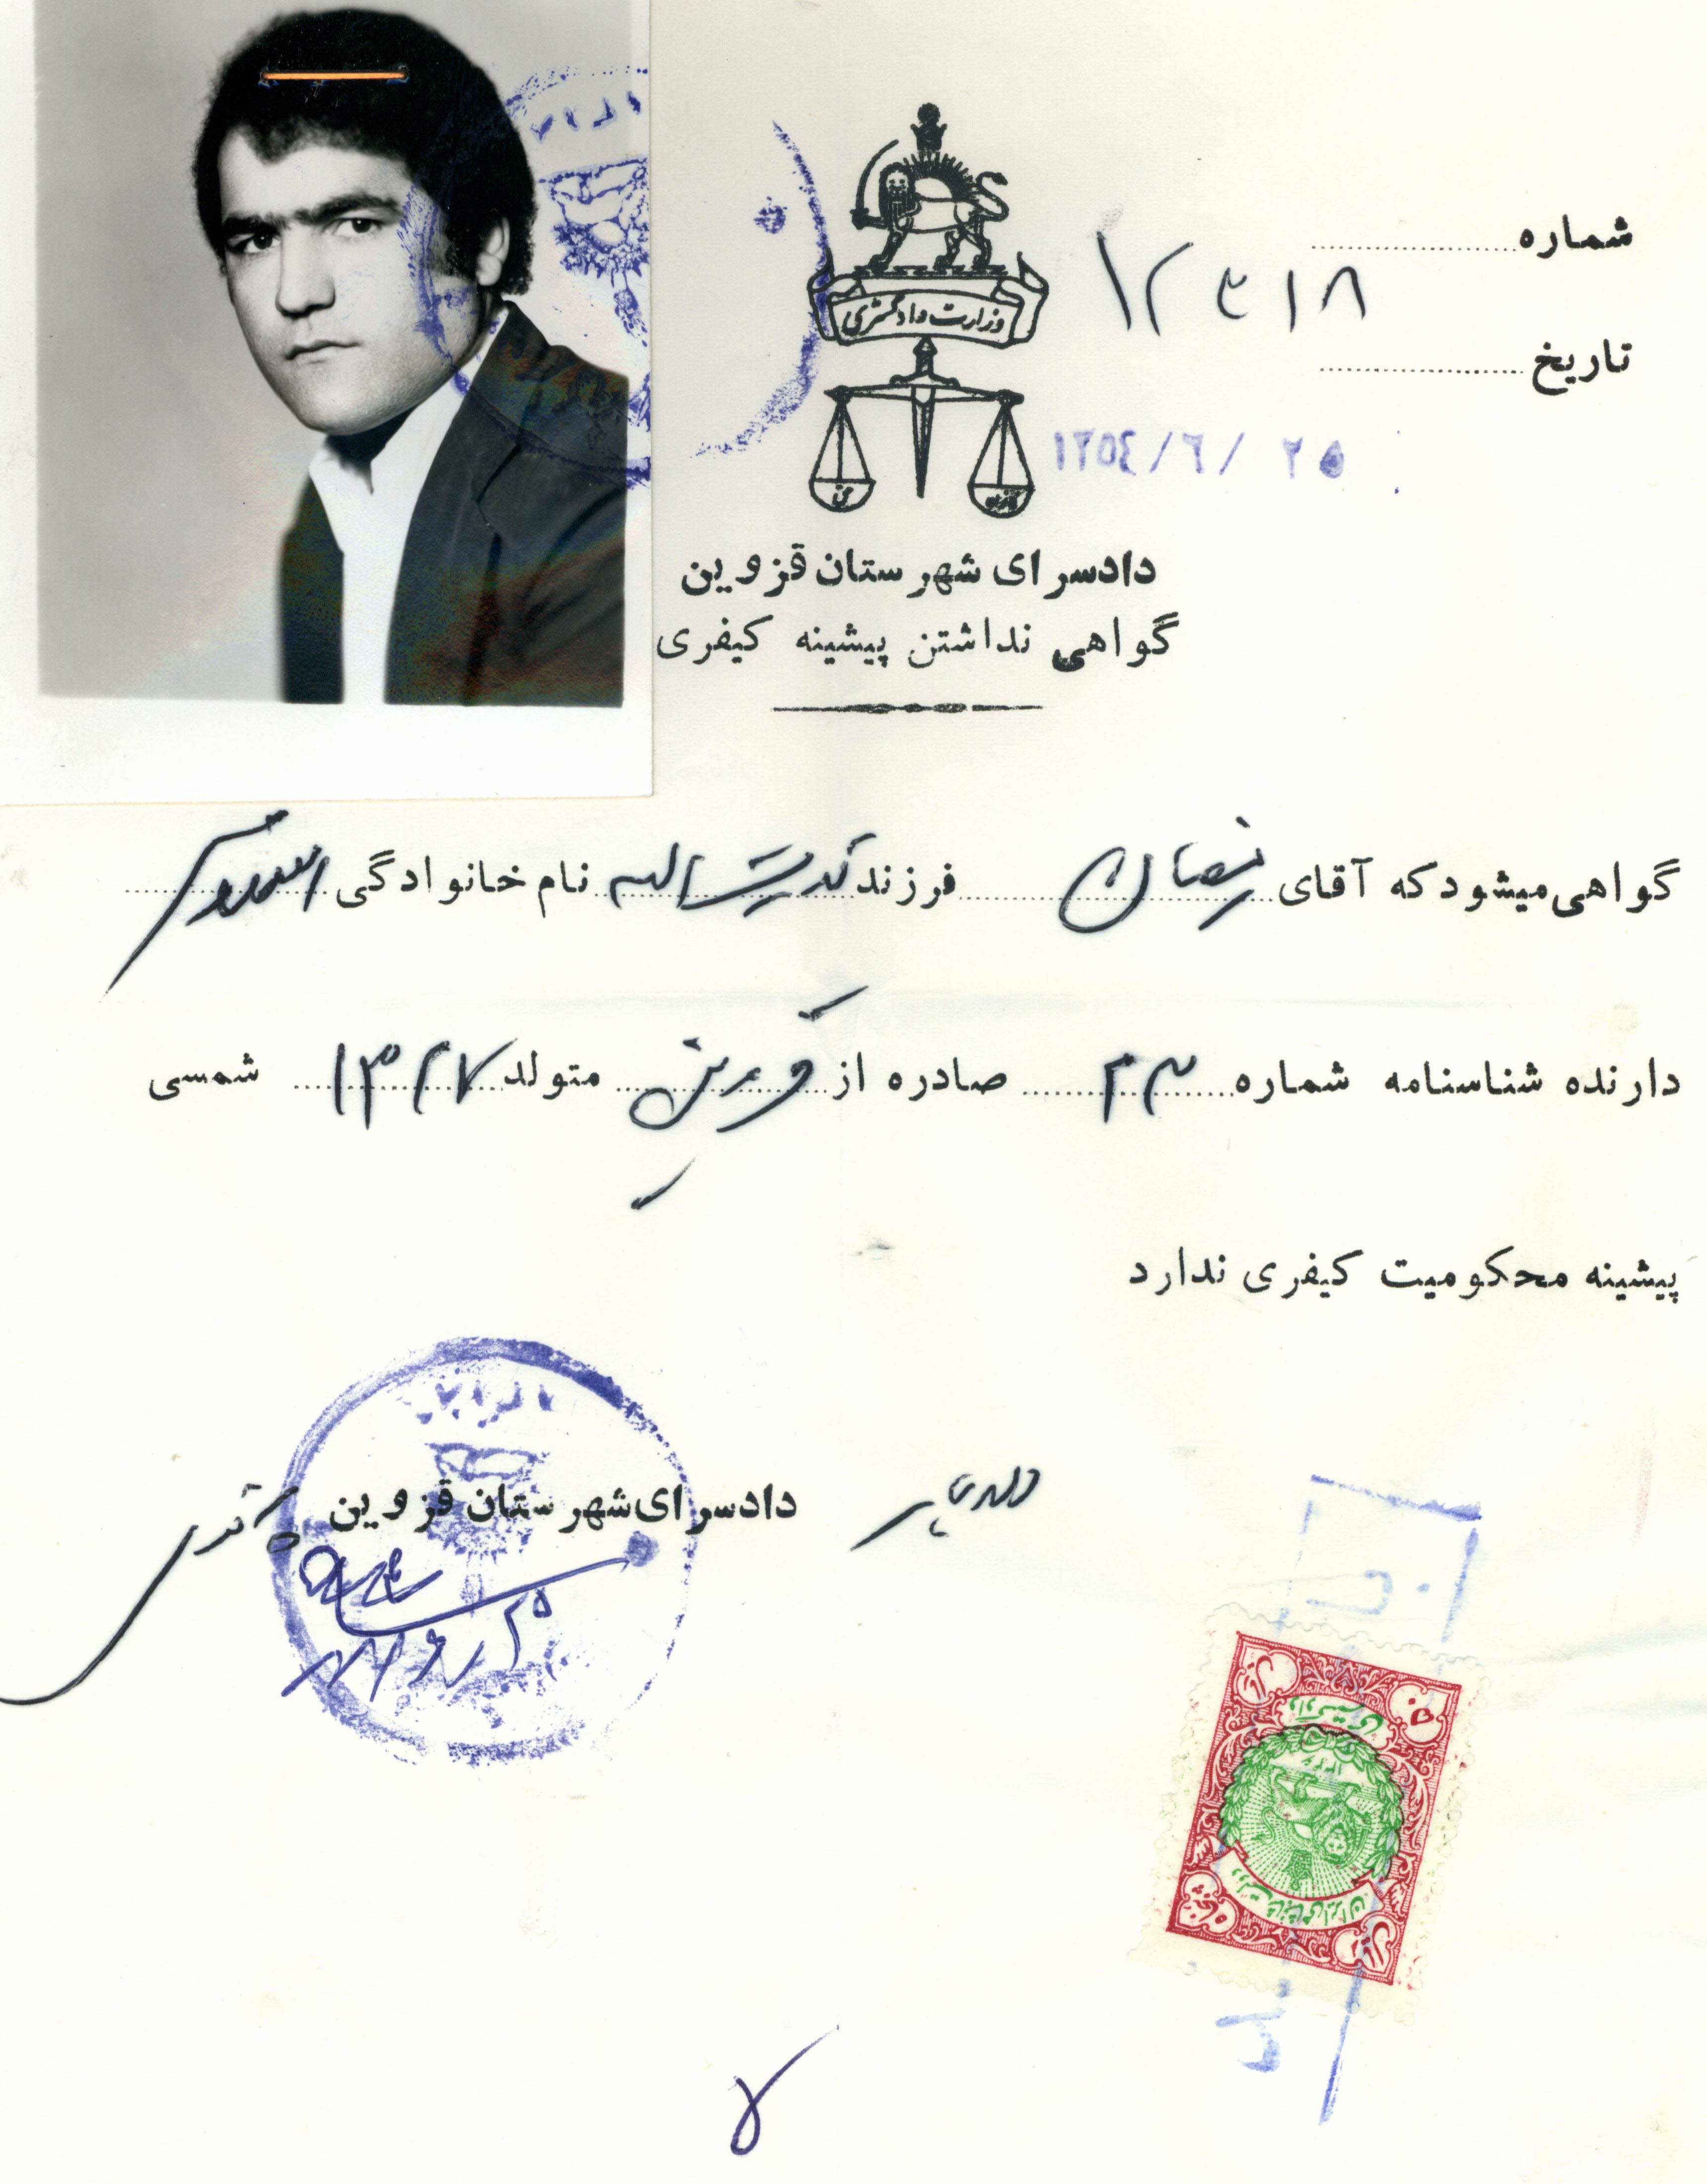 شماره
۱۲۴۱۸
وزارت دادگستری
تاریخ
۱۳۵۴/۶/۲۵
دادسرای شهرستان قزوین
گواهی نداشتن پیشینه کیفری
گواهی میشود که آقای رمضان فرزند قدرت اله نام خانوادگی
دارنده شناسنامه شماره ۴۳ صادره از قزوین متولد ۱۳۲۷ شمسی
پیشینه محکومیت کیفری ندارد
دادیار دادسرای شهرستان قزوین